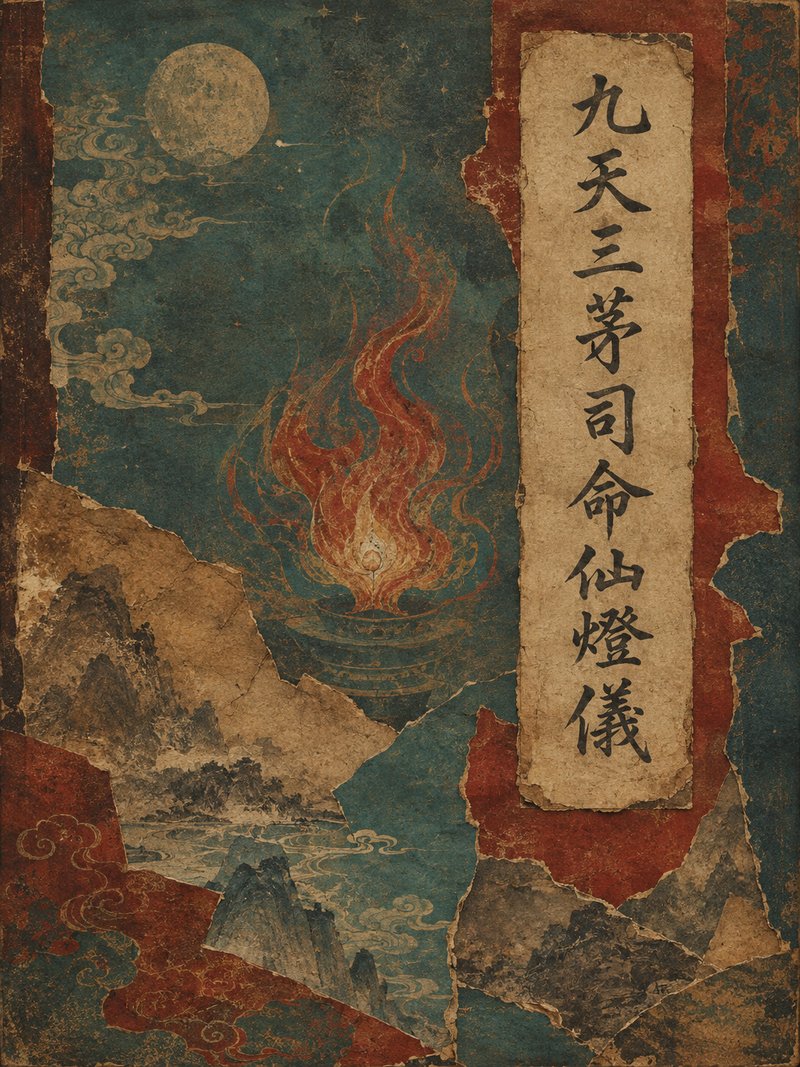 九天三茅司命仙燈儀